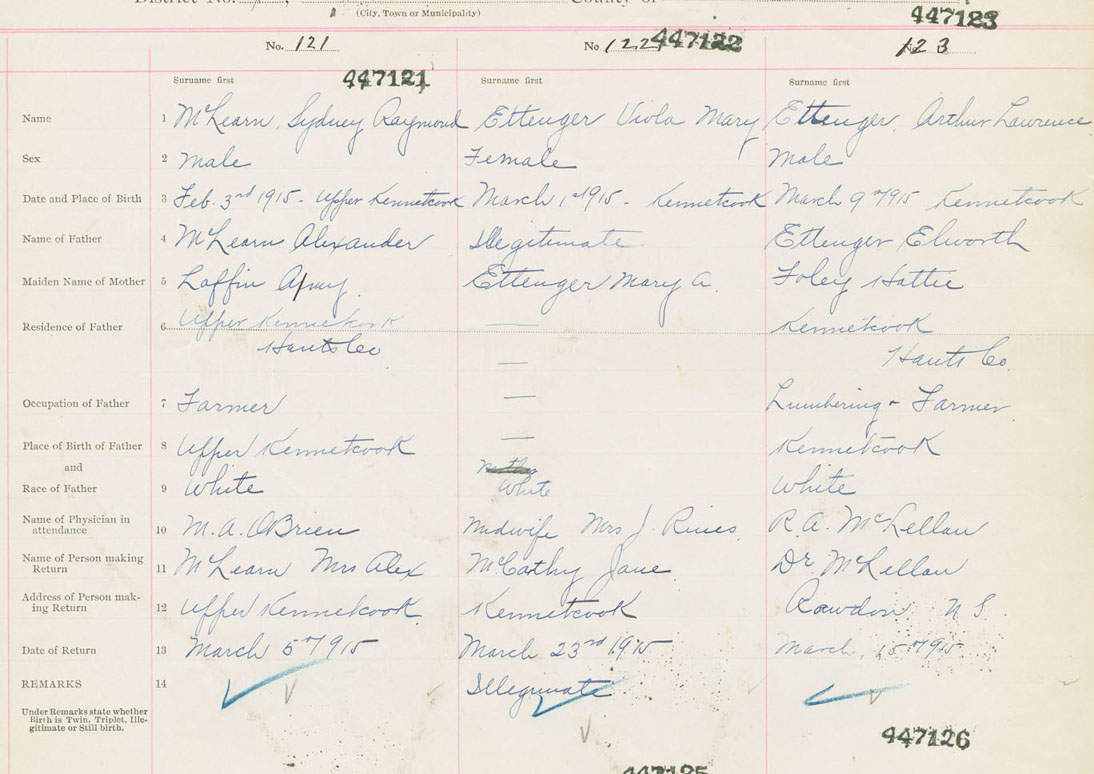 District No. County of
(City, Town or Municipality)
447123
No. 121 No 122 447122 123
447121
Surname first Surname first Surname first
Name 1 McLearn, Sydney Raymond Ettenger Viola Mary Ettenger, Arthur Lawrence
Sex 2 Male Female Male
Date and Place of Birth 3 Feb. 3rd 1915 - Upper Kennetcook March 1st 1915 - Kennetcook March 9th 1915 Kennetcook
Name of Father 4 McLearn Alexander Illegitimate Ettenger Elworth
Maiden Name of Mother 5 Laffin Ettenger Mary A. Foley Hattie
Residence of Father 6 Upper Kennetcook — Kennetcook
Hants Co — Hants Co.
Occupation of Father 7 Farmer — Lumbering & Farmer
Place of Birth of Father 8 Upper Kennetcook — Kennetcook
and
Race of Father 9 White White White
Name of Physician in 10 M. A. OBrien Midwife Mrs J. Rines R. A. McLellan
attendance
Name of Person making 11 McLearn Mrs Alex McCathy Jane Dr. McLellan
Return
Address of Person mak- 12 Upper Kennetcook Kennetcook Rawdon N S.
ing Return
Date of Return 13 March 5th 1915 March 23rd 1915 March, 15th 1915
REMARKS 14 Illegimate
Under Remarks state whether
Birth is Twin, Triplet, Ille-
gitimate or Still birth.
447126
447125